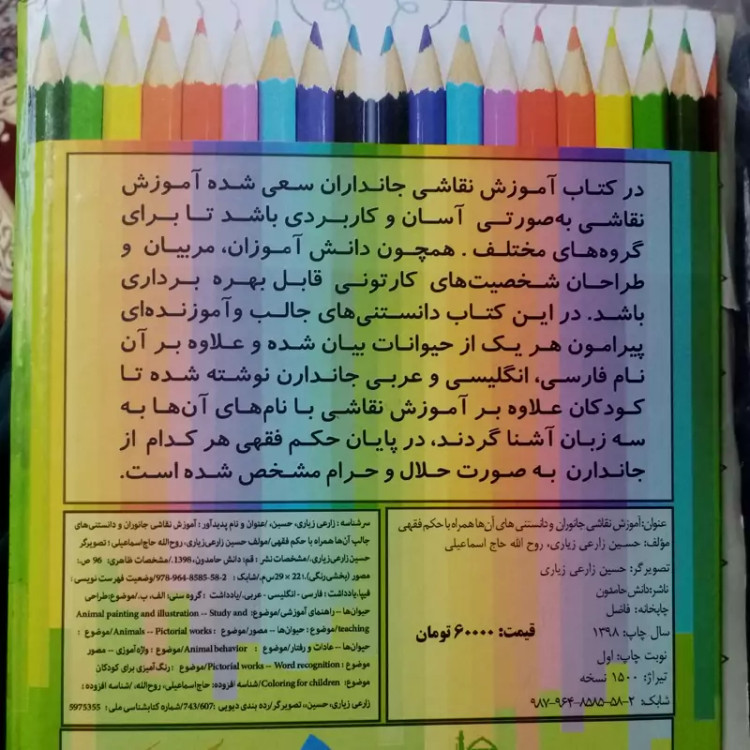 در کتاب آموزش نقاشی جانداران سعی شده آموزش
نقاشی به‌صورتی آسان و کاربردی باشد تا برای
گروه‌های مختلف . همچون دانش آموزان، مربیان و
طراحان شخصیت‌های کارتونی قابل بهره برداری
باشد. در این کتاب دانستنی‌های جالب وآموزنده‌ای
پیرامون هر یک از حیوانات بیان شده و علاوه بر آن
نام فارسی، انگلیسی و عربی جاندارن نوشته شده تا
کودکان علاوه بر آموزش نقاشی با نام‌های آن‌ها به
سه زبان آشنا گردند، در پایان حکم فقهی هر کدام از
جاندارن به صورت حلال و حرام مشخص شده است.
عنوان: آموزش نقاشی جانوران و دانستنی های آن‌ها همراه با حکم فقهی
مؤلف: حسین زارعی زیاری، روح الله حاج اسماعیلی
تصویرگر: حسین زارعی زیاری
ناشر: دانش حامدون
چاپخانه: فاضل
سال چاپ: ۱۳۹۸
قیمت: ۶۰۰۰۰ تومان
نوبت چاپ: اول
تیراژ: ۱۵۰۰ نسخه
شابک: ۲-۵۸-۸۵۸۵-۹۶۴-۹۸۷
سرشناسه : زارعی زیاری، حسین، /عنوان و نام پدیدآور : آموزش نقاشی جانوران و دانستنی‌های
جالب آن‌ها همراه با حکم فقهی/مولف حسین زارعی‌زیاری، روح‌الله حاج‌اسماعیلی ؛ تصویرگر
حسین زارعی‌زیاری./مشخصات نشر : قم: دانش حامدون، 1398./مشخصات ظاهری: 96 ص:
مصور (بخشی‌رنگی).؛ 22 × 29س‌م./شابک : 2-58-8585-964-978/وضعیت فهرست نویسی :
فیپا/یادداشت : فارسی - انگلیسی - عربی./یادداشت : گروه سنی: الف، ب./موضوع:طراحی
حیوان‌ها -- راهنمای آموزشی/موضوع: Animal painting and illustration -- Study and
teaching/موضوع : حیوان‌ها -- مصور/موضوع : Animals -- Pictorial works/موضوع :
حیوان‌ها -- عادات و رفتار/موضوع : Animal behavior/موضوع : واژه‌آموزی -- مصور
موضوع : Pictorial works -- Word recognition/موضوع : رنگ‌آمیزی برای کودکان
موضوع: Coloring for children/شناسه افزوده: حاج‌اسماعیلی، روح‌الله، /شناسه افزوده :
زارعی زیاری، حسین،، تصویرگر/رده بندی دیویی :743/607/شماره کتابشناسی ملی : 5975355